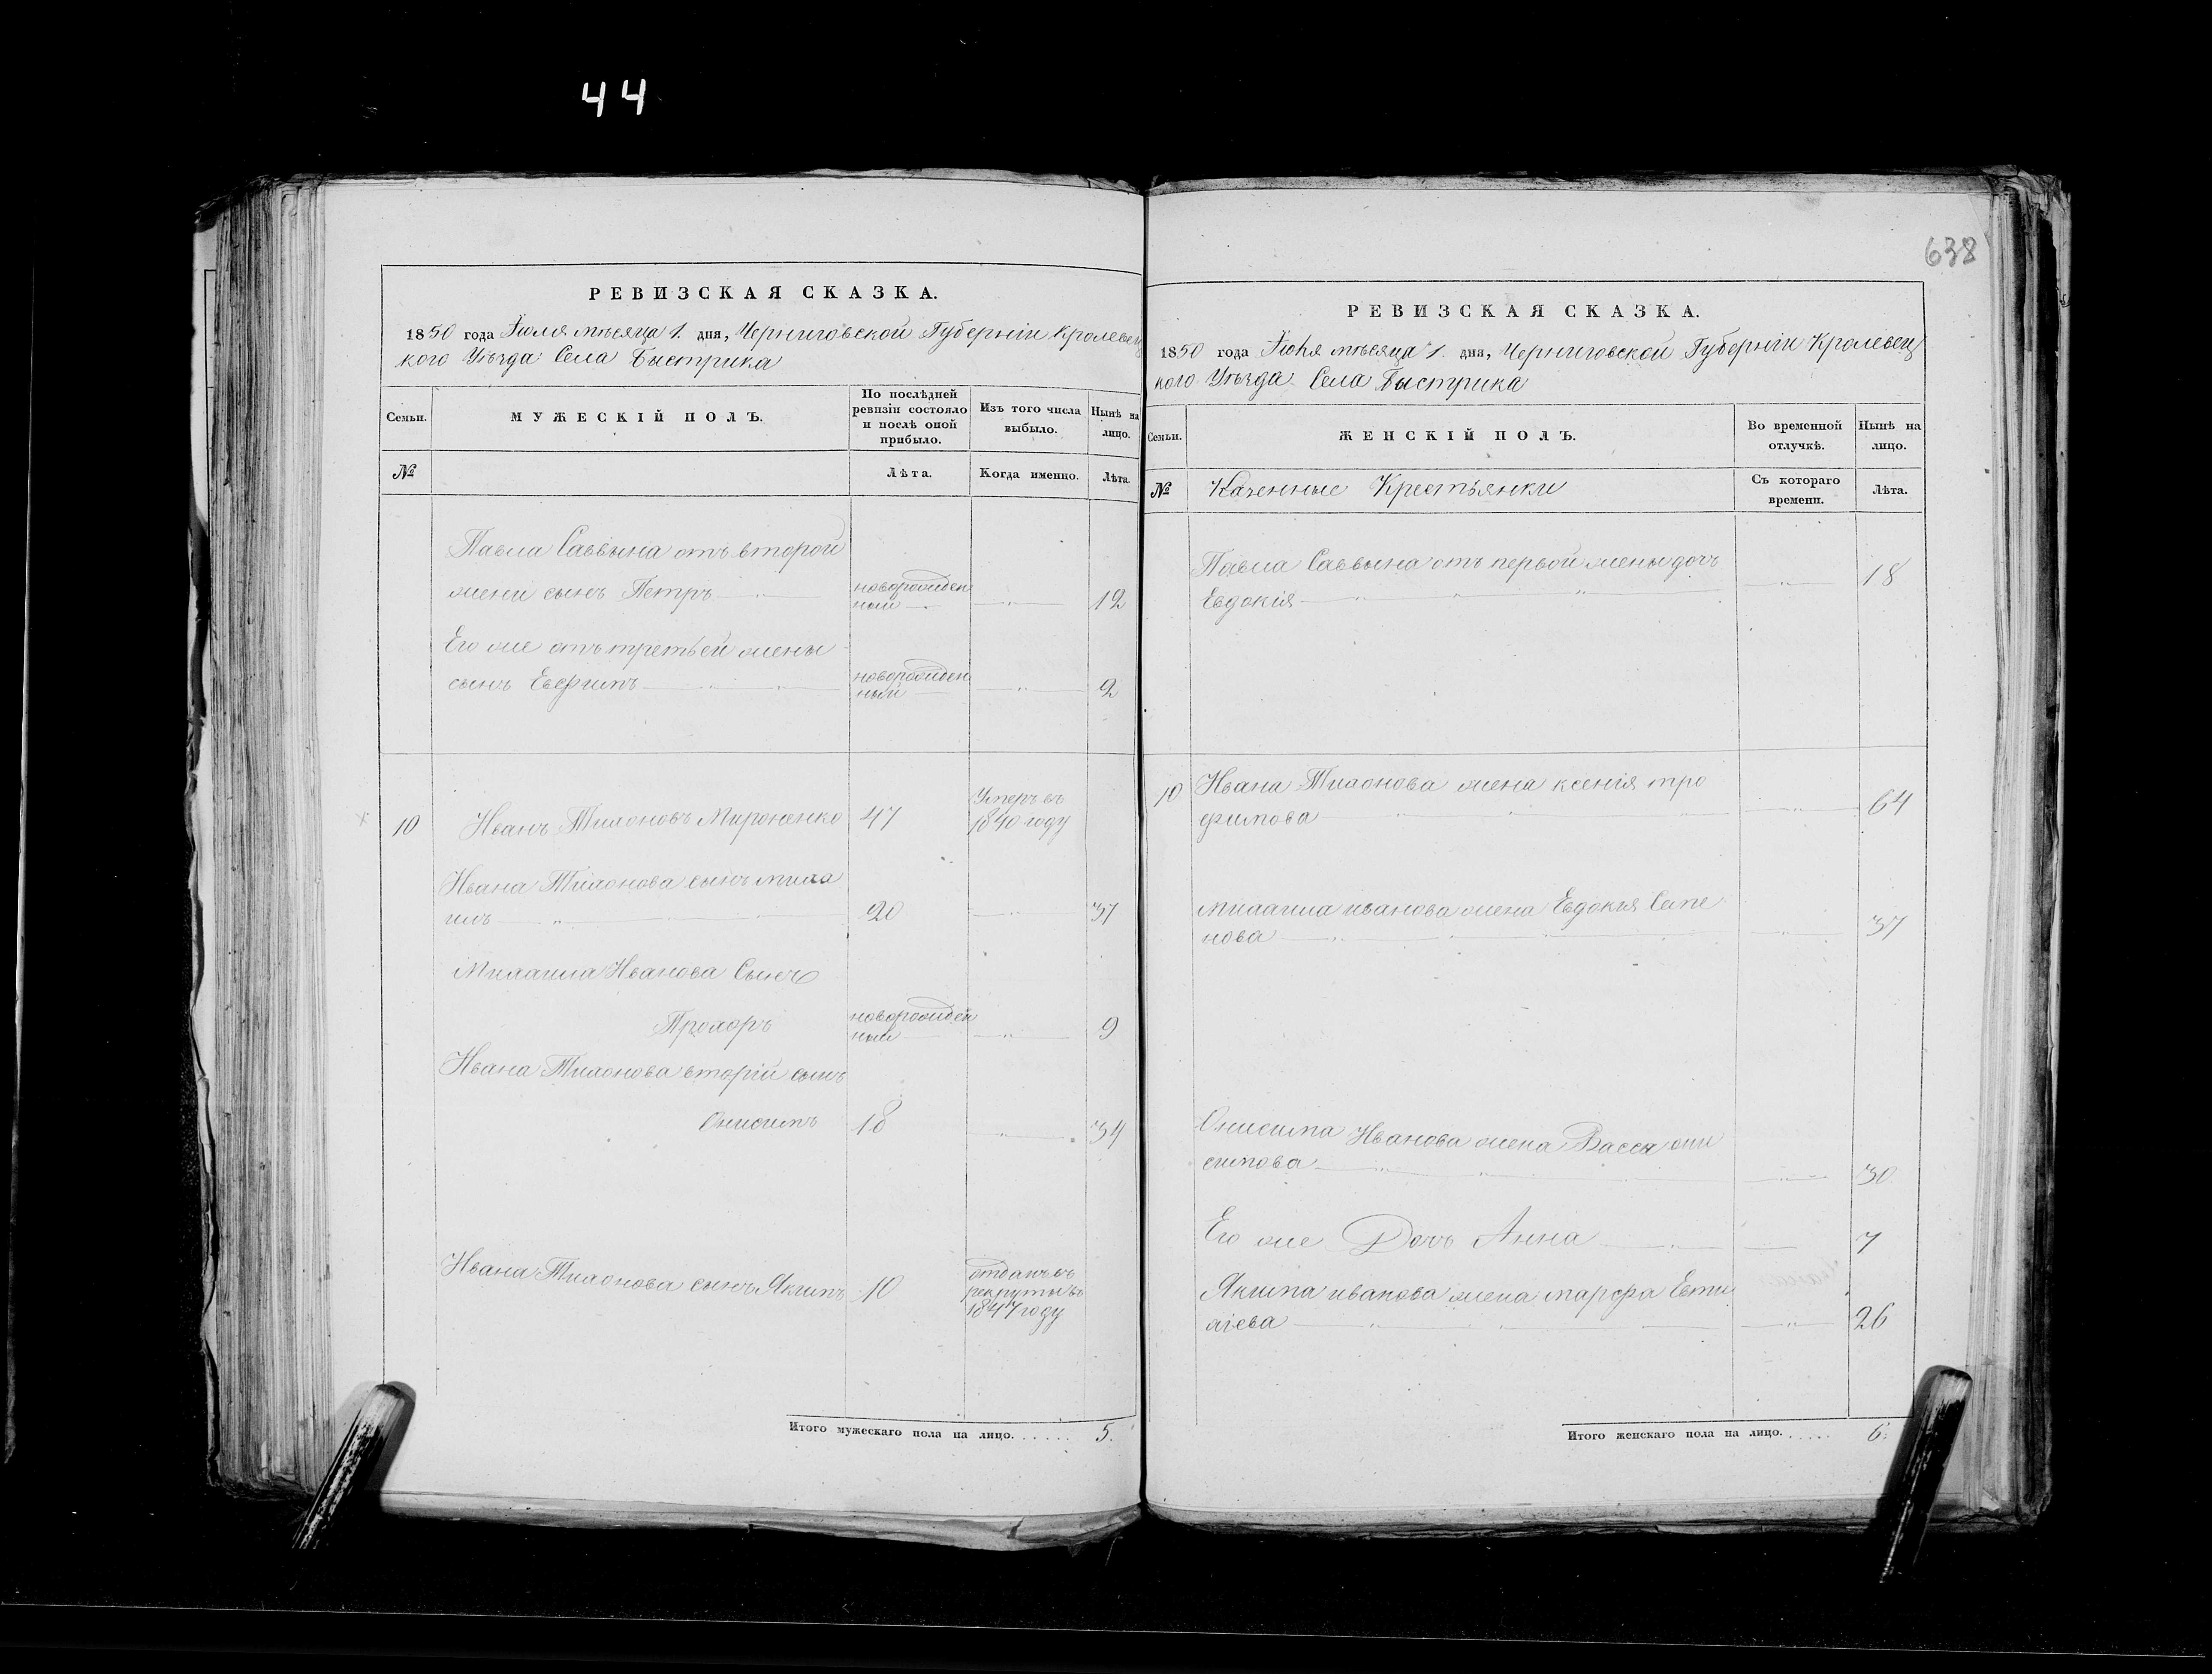 44
РЕВИЗСКАЯ СКАЗКА.
1850 года Іюля мѣсяца 1. дня, Черниговской Губерніи Кролевец
кого Уѣзда Села Быстрика
Семьи.
МУЖЕСКІЙ ПОЛЪ.
По послѣдней
ревизіи состояло
и послѣ оной
прибыло.
Изъ того числа
выбыло.
Нынѣ на
лицо.
№
Лѣта.
Когда именно.
Лѣта.
Павла Саввына отъ второй
жени сынъ Петръ
новорожден
ный
12
Его же отъ третьей жены
сынъ Евфимъ
новорожден
ный
2
10
Иванъ Тихоновъ Мироненко
47
Умеръ въ
1840 году
Ивана Тихонова сынъ миха
илъ
20
37
Михаила Иванова Сынъ
Прохоръ
новорожден
ный
9
Ивана Тихонова вторій сынъ
Онисимъ
18
34
Ивана Тихонова сынъ Якимъ
10
отданъ въ
рекруты въ
1847 году
Итого мужескаго пола на лицо. . . . . . 5.
638
РЕВИЗСКАЯ СКАЗКА.
1850 года Іюля мѣсяца 1. дня, Черниговской Губерніи Кролевец
кого Уѣзда Села Быстрика
Семьи.
ЖЕНСКІЙ ПОЛЪ.
Во временной
отлучкѣ.
Нынѣ на
лицо.
№
Казенные Крестьянки
Съ котораго
времени.
Лѣта.
Павла Саввына отъ первой жены дочъ
Евдокія
18
10
Ивана Тихонова жена ксенія тро
фимова
64
михаила иванова жена Евдокія Семе
нова
37
Онисима Иванова жена Васса они
симова
30
Его же Дочъ Анна
7
Якима иванова жена марфа Евти
хіева
26
Итого женскаго пола на лицо. . . . . 6.